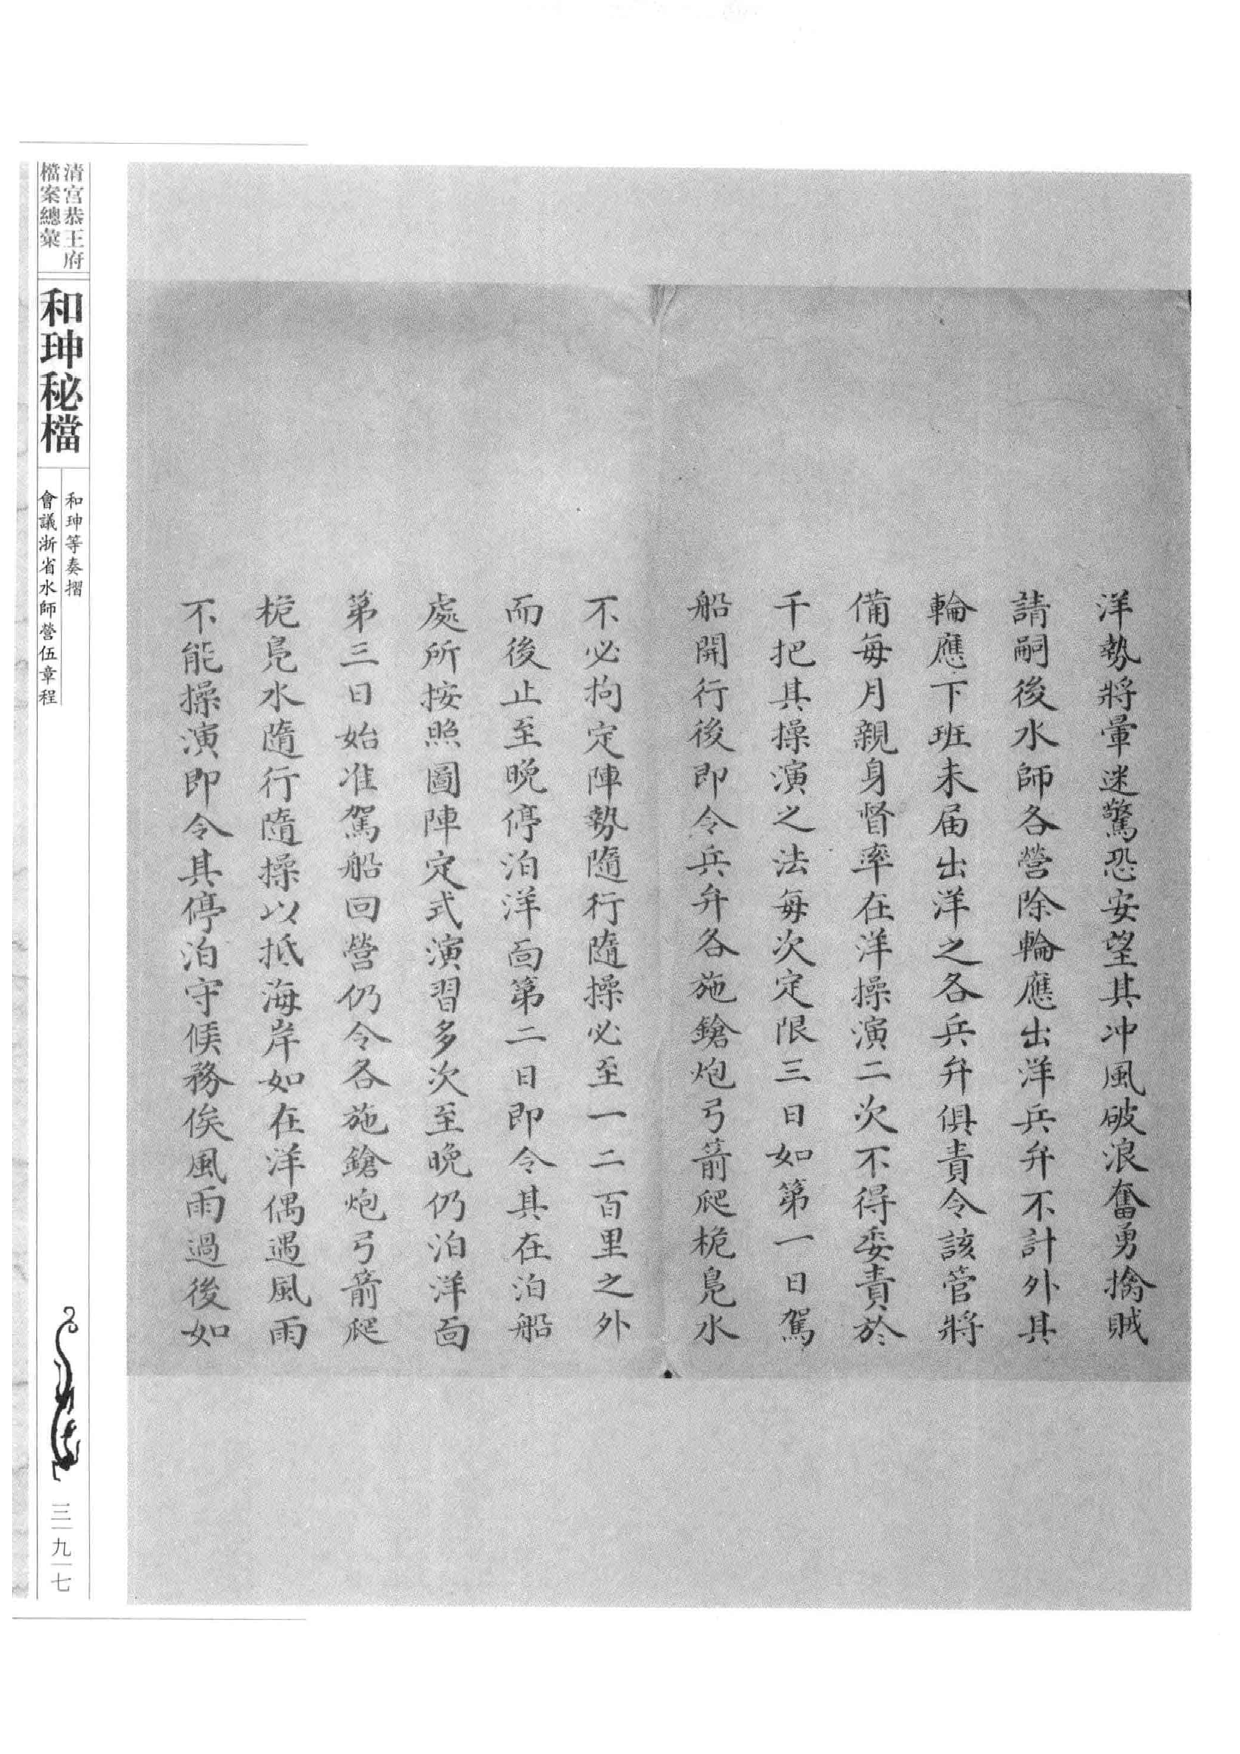 洋勢將暈迷驚恐安望其冲風破浪奮勇擒賊
請嗣後水師各營除輪應出洋兵弁不計外其
輪應下班未届出洋之各兵弁俱責令該管將
備每月親身督率在洋操演二次不得委責於
千把其操演之法每次定限三日如第一日駕
船開行後即令兵弁各施鎗炮弓箭爬桅鳧水
不必拘定陣勢隨行隨操必至一二百里之外
而後止至晚停泊洋面第二日即令其在泊船
處所按照圖陣定式演習多次至晚仍泊洋面
第三日始准駕船回營仍令各施鎗炮弓箭爬
桅鳧水隨行隨操以抵海岸如在洋偶遇風雨
不能操演即令其停泊守候務俟風雨過後如
清宮恭王府
檔案總彙
和珅秘檔
和珅等奏摺
會議浙省水師營伍章程
三九一七